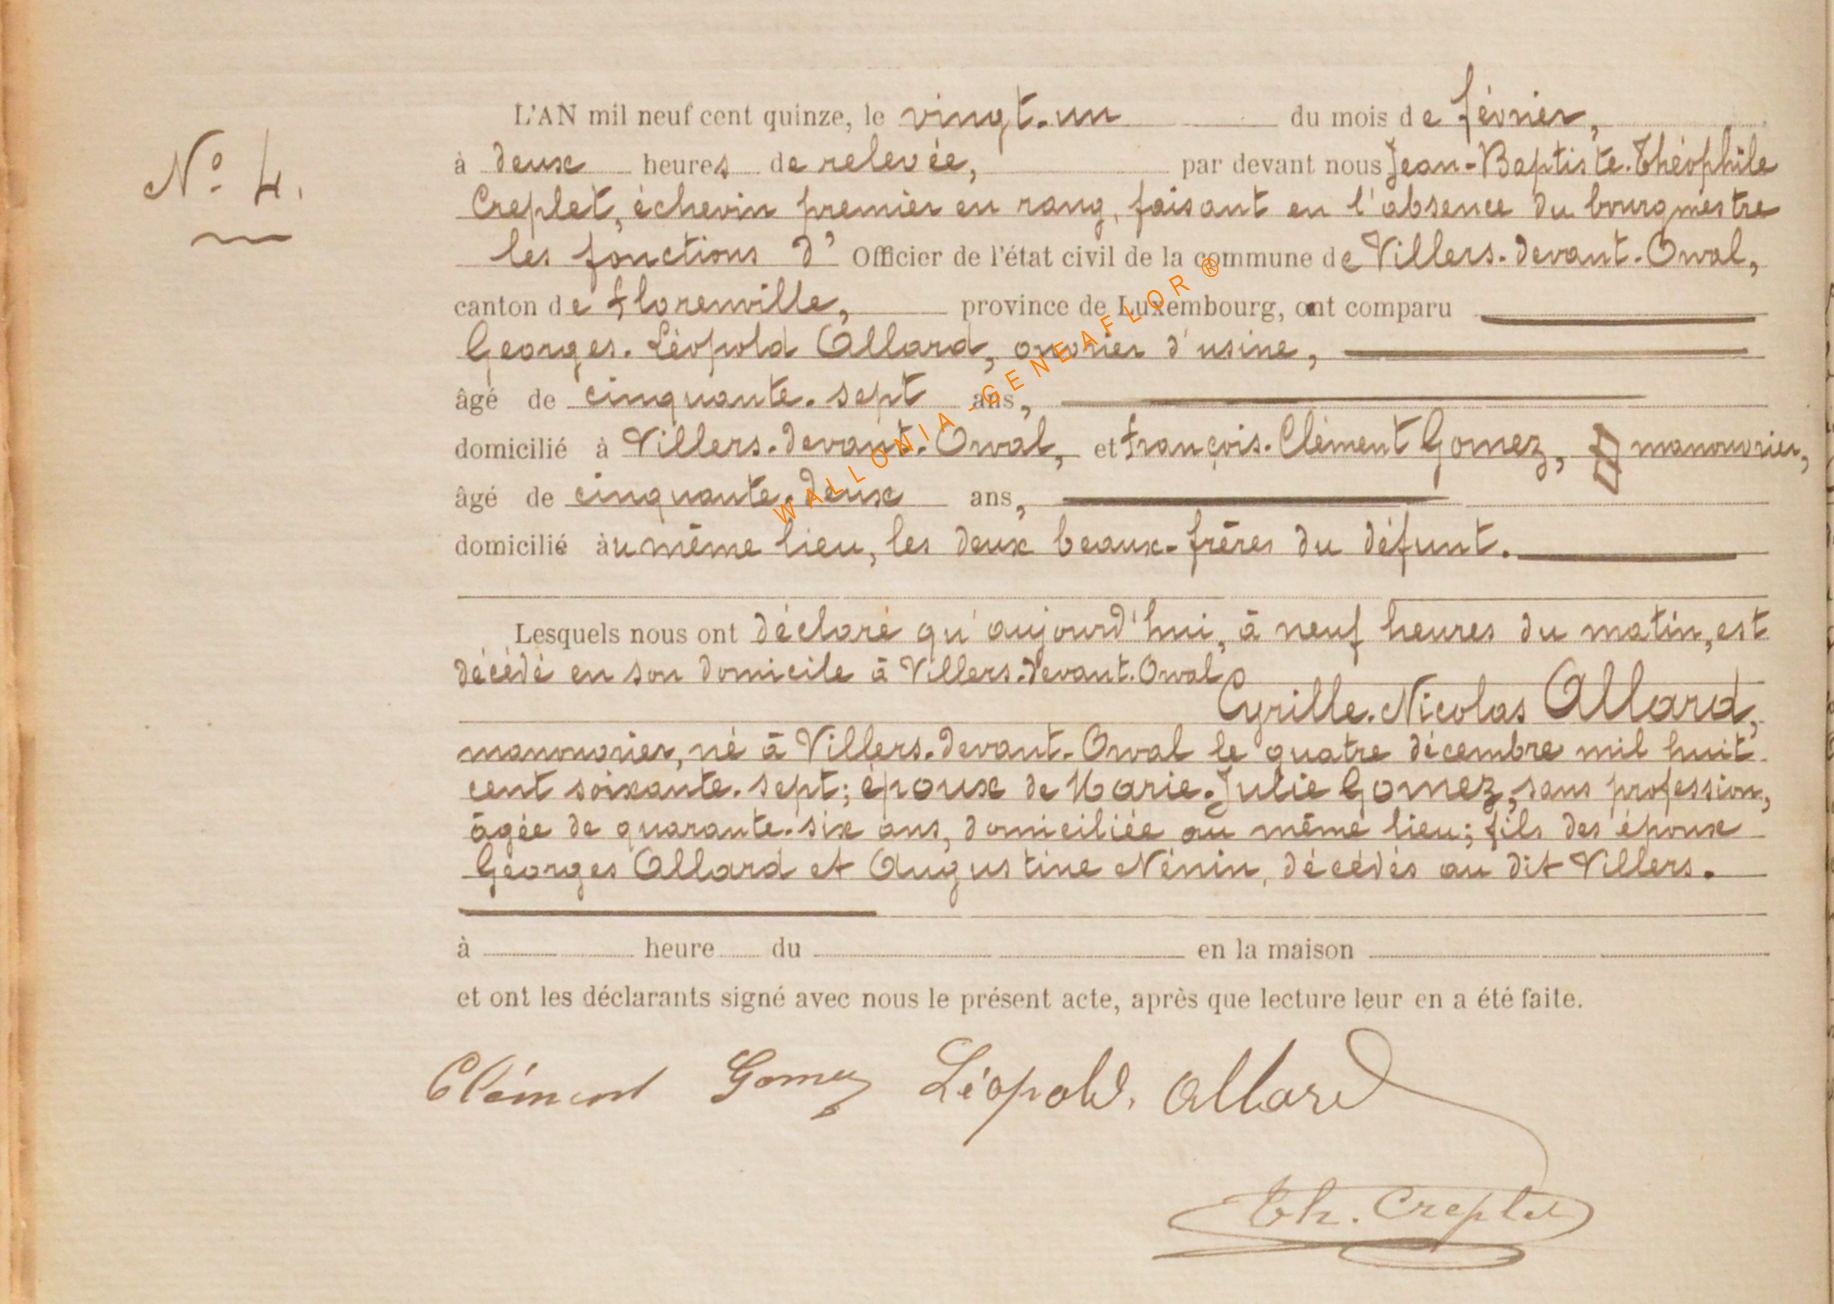 N° 4.
L'AN mil neuf cent quinze, le vingt-un du mois de février,
à deux heures de relevée, par devant nous Jean-Baptiste-Théophile
Creplet, échevin premier en rang, faisant en l'absence du bourgmestre
les fonctions d' Officier de l'état civil de la commune de Villers-devant-Orval,
canton de Florenville, province de Luxembourg, ont comparu
Georges-Léopold Allard, ouvrier d'usine,
âgé de cinquante-sept ans,
domicilié à Villers-devant-Orval, et François-Clément Gomez, manouvrier,
âgé de cinquante-deux ans,
domicilié au même lieu, les deux beaux-frères du défunt.
Lesquels nous ont déclaré qu'aujourd'hui, à neuf heures du matin, est
décédé en son domicile à Villers-devant-Orval
Cyrille-Nicolas Allard,
manouvrier, né à Villers-devant-Orval le quatre décembre mil huit
cent soixante-sept; époux de Marie-Julie Gomez, sans profession,
âgée de quarante-six ans, domiciliée au même lieu; fils des époux
Georges Allard et Augustine Nénin, décédés au dit Villers.
à heure du en la maison
et ont les déclarants signé avec nous le présent acte, après que lecture leur en a été faite.
Clément Gomez Léopold Allard
Th. Creplet
WALLONIA-GENEAFLOR ®